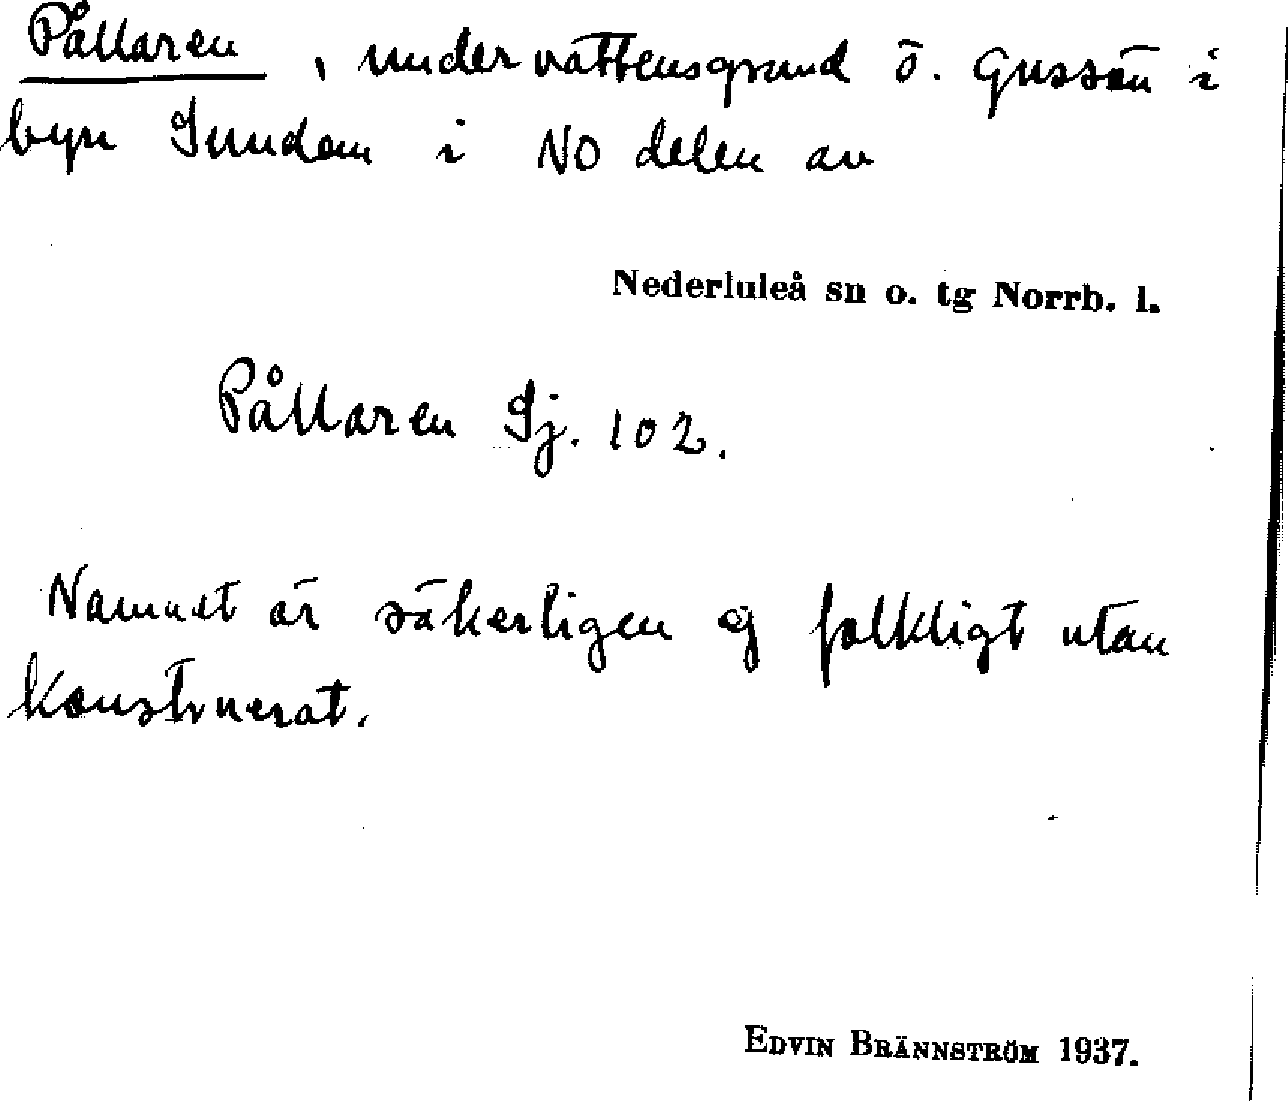 Pållaren, undervattensgrund ö. Gussön i
byn Sundom i NO delen av
Nederluleå sn o. tg Norrb. l.
Pållaren Sj. 102.
Namnet är säkerligen ej folkligt utan
konstruerat.
EDVIN BRÄNNSTRÖM 1937.